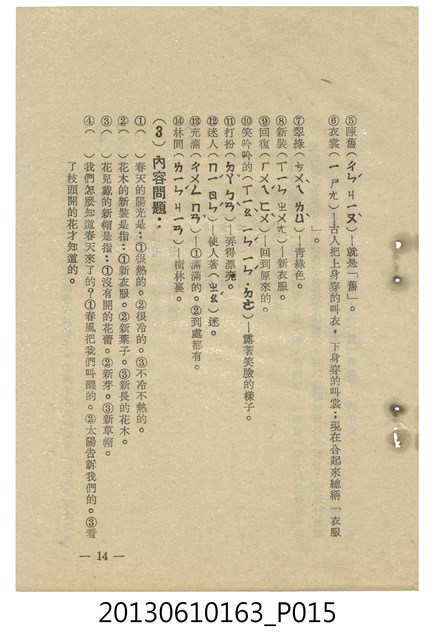 ⑤陳舊(ㄔㄣˊ ㄐㄧㄡˋ)—就是「舊」。
⑥衣裳(ㄧ ㄕㄤ)—古人把上身穿的叫衣,下身穿的叫裳;現在合起來總稱「衣服
」。
⑦翠綠(ㄘㄨㄟˋ ㄌㄩˋ)—青綠色。
⑧新裝(ㄒㄧㄣ ㄓㄨㄤ)—新衣服。
⑨回復(ㄏㄨㄟˊ ㄈㄨˋ)—回到原來的。
⑩笑吟吟的(ㄒㄧㄠˋ ㄧㄣˊ ㄧㄣˊ ˙ㄉㄜ)—露著笑臉的樣子。
⑪打扮(ㄉㄚˇ ㄅㄢˋ)—弄得漂亮。
⑫迷人(ㄇㄧˊ ㄖㄣˊ)—使人著(ㄓㄠˊ)迷。
⑬充滿(ㄔㄨㄥ ㄇㄢˇ)—①滿滿的。②到處都有。
⑭林間(ㄌㄧㄣˊ ㄐㄧㄢ)—樹林裏。
(3)內容問題:
①( )春天的陽光是:①很熱的。②很冷的。③不冷不熱的。
②( )花木的新裝是指:①新衣服。②新葉子。③新長的花木。
③( )花兒戴的新帽是指:①沒有開的花蕾。②新芽。③新草帽。
④( )我們怎麼知道春天來了的?①春風把我們叫醒的。②太陽告訴我們的。③看
了枝頭開的花才知道的。
— 14 —
20130610163_P015